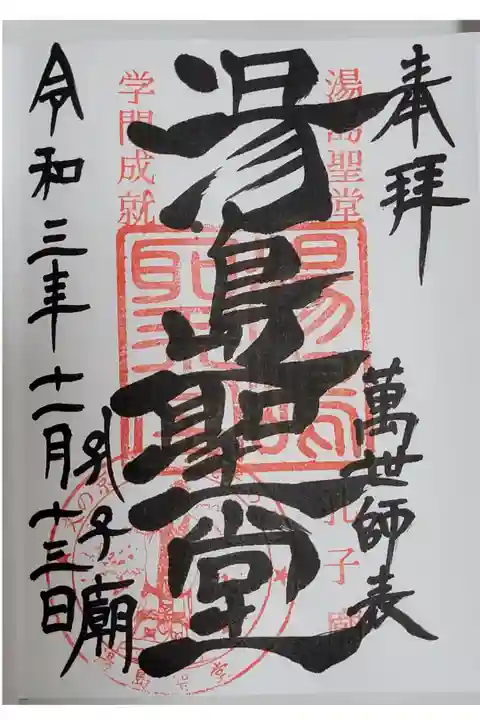 奉拝
萬世師表
湯島聖堂
孔子廟
湯島聖堂
学問成就
孔子廟
令和三年十一月十三日